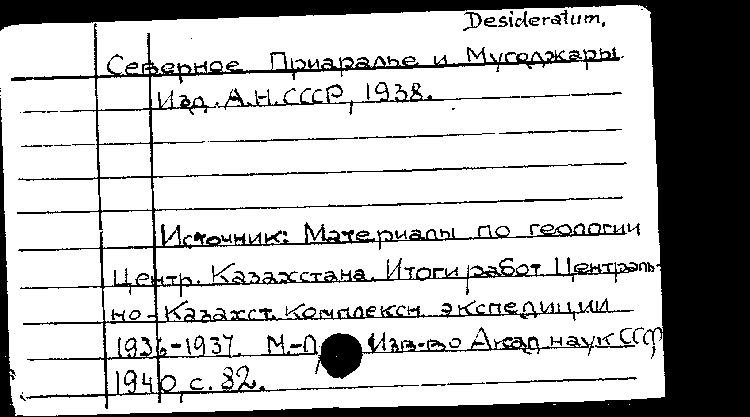 Desideratum.
Северное Приаралье и Мугоджары
Изд. А.Н.СССР, 1938.
Источник: Материалы по геологии
Центр. Казахстана. Итоги работ Централь-
но-Казахст. комплексн. экспедиции
1936-1937. М.-Л. Изв-во Акад наук СССР
1940, с. 82.